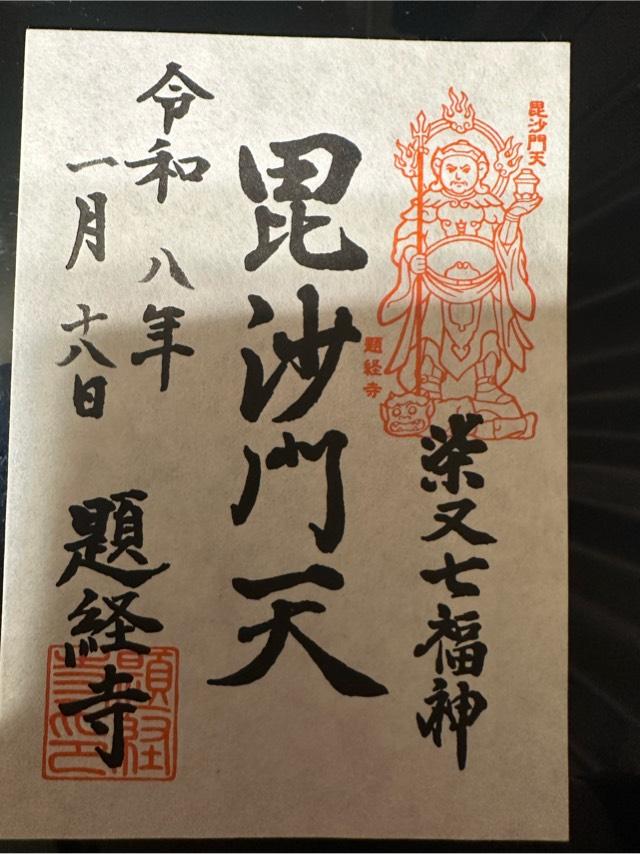 毘沙門天
題経寺
柴又七福神
毘沙門天
令和八年
一月十八日
題経寺